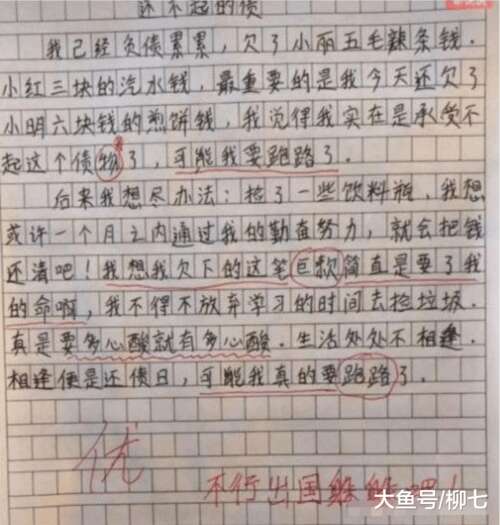 还不起的债
我已经负债累累,欠了小丽五毛辣条钱.
小红三块的汽水钱,最重要的是我今天还欠了
小明六块钱的煎饼钱,我觉得我实在是承受不
起这个债物了,可能我要跑路了.
后来我想尽办法:捡了一些饮料瓶,我想
或许一个月之内通过我的勤奋努力,就会把钱
还清吧!我想我欠下的这笔巨款简直是要了我
的命啊,我不得不放弃学习的时间去捡垃圾.
真是要多心酸就有多心酸.生活处处不相逢.
相逢便是还债日,可能我真的要跑路了.
优
不行出国躲躲吧!
大鱼号/柳七